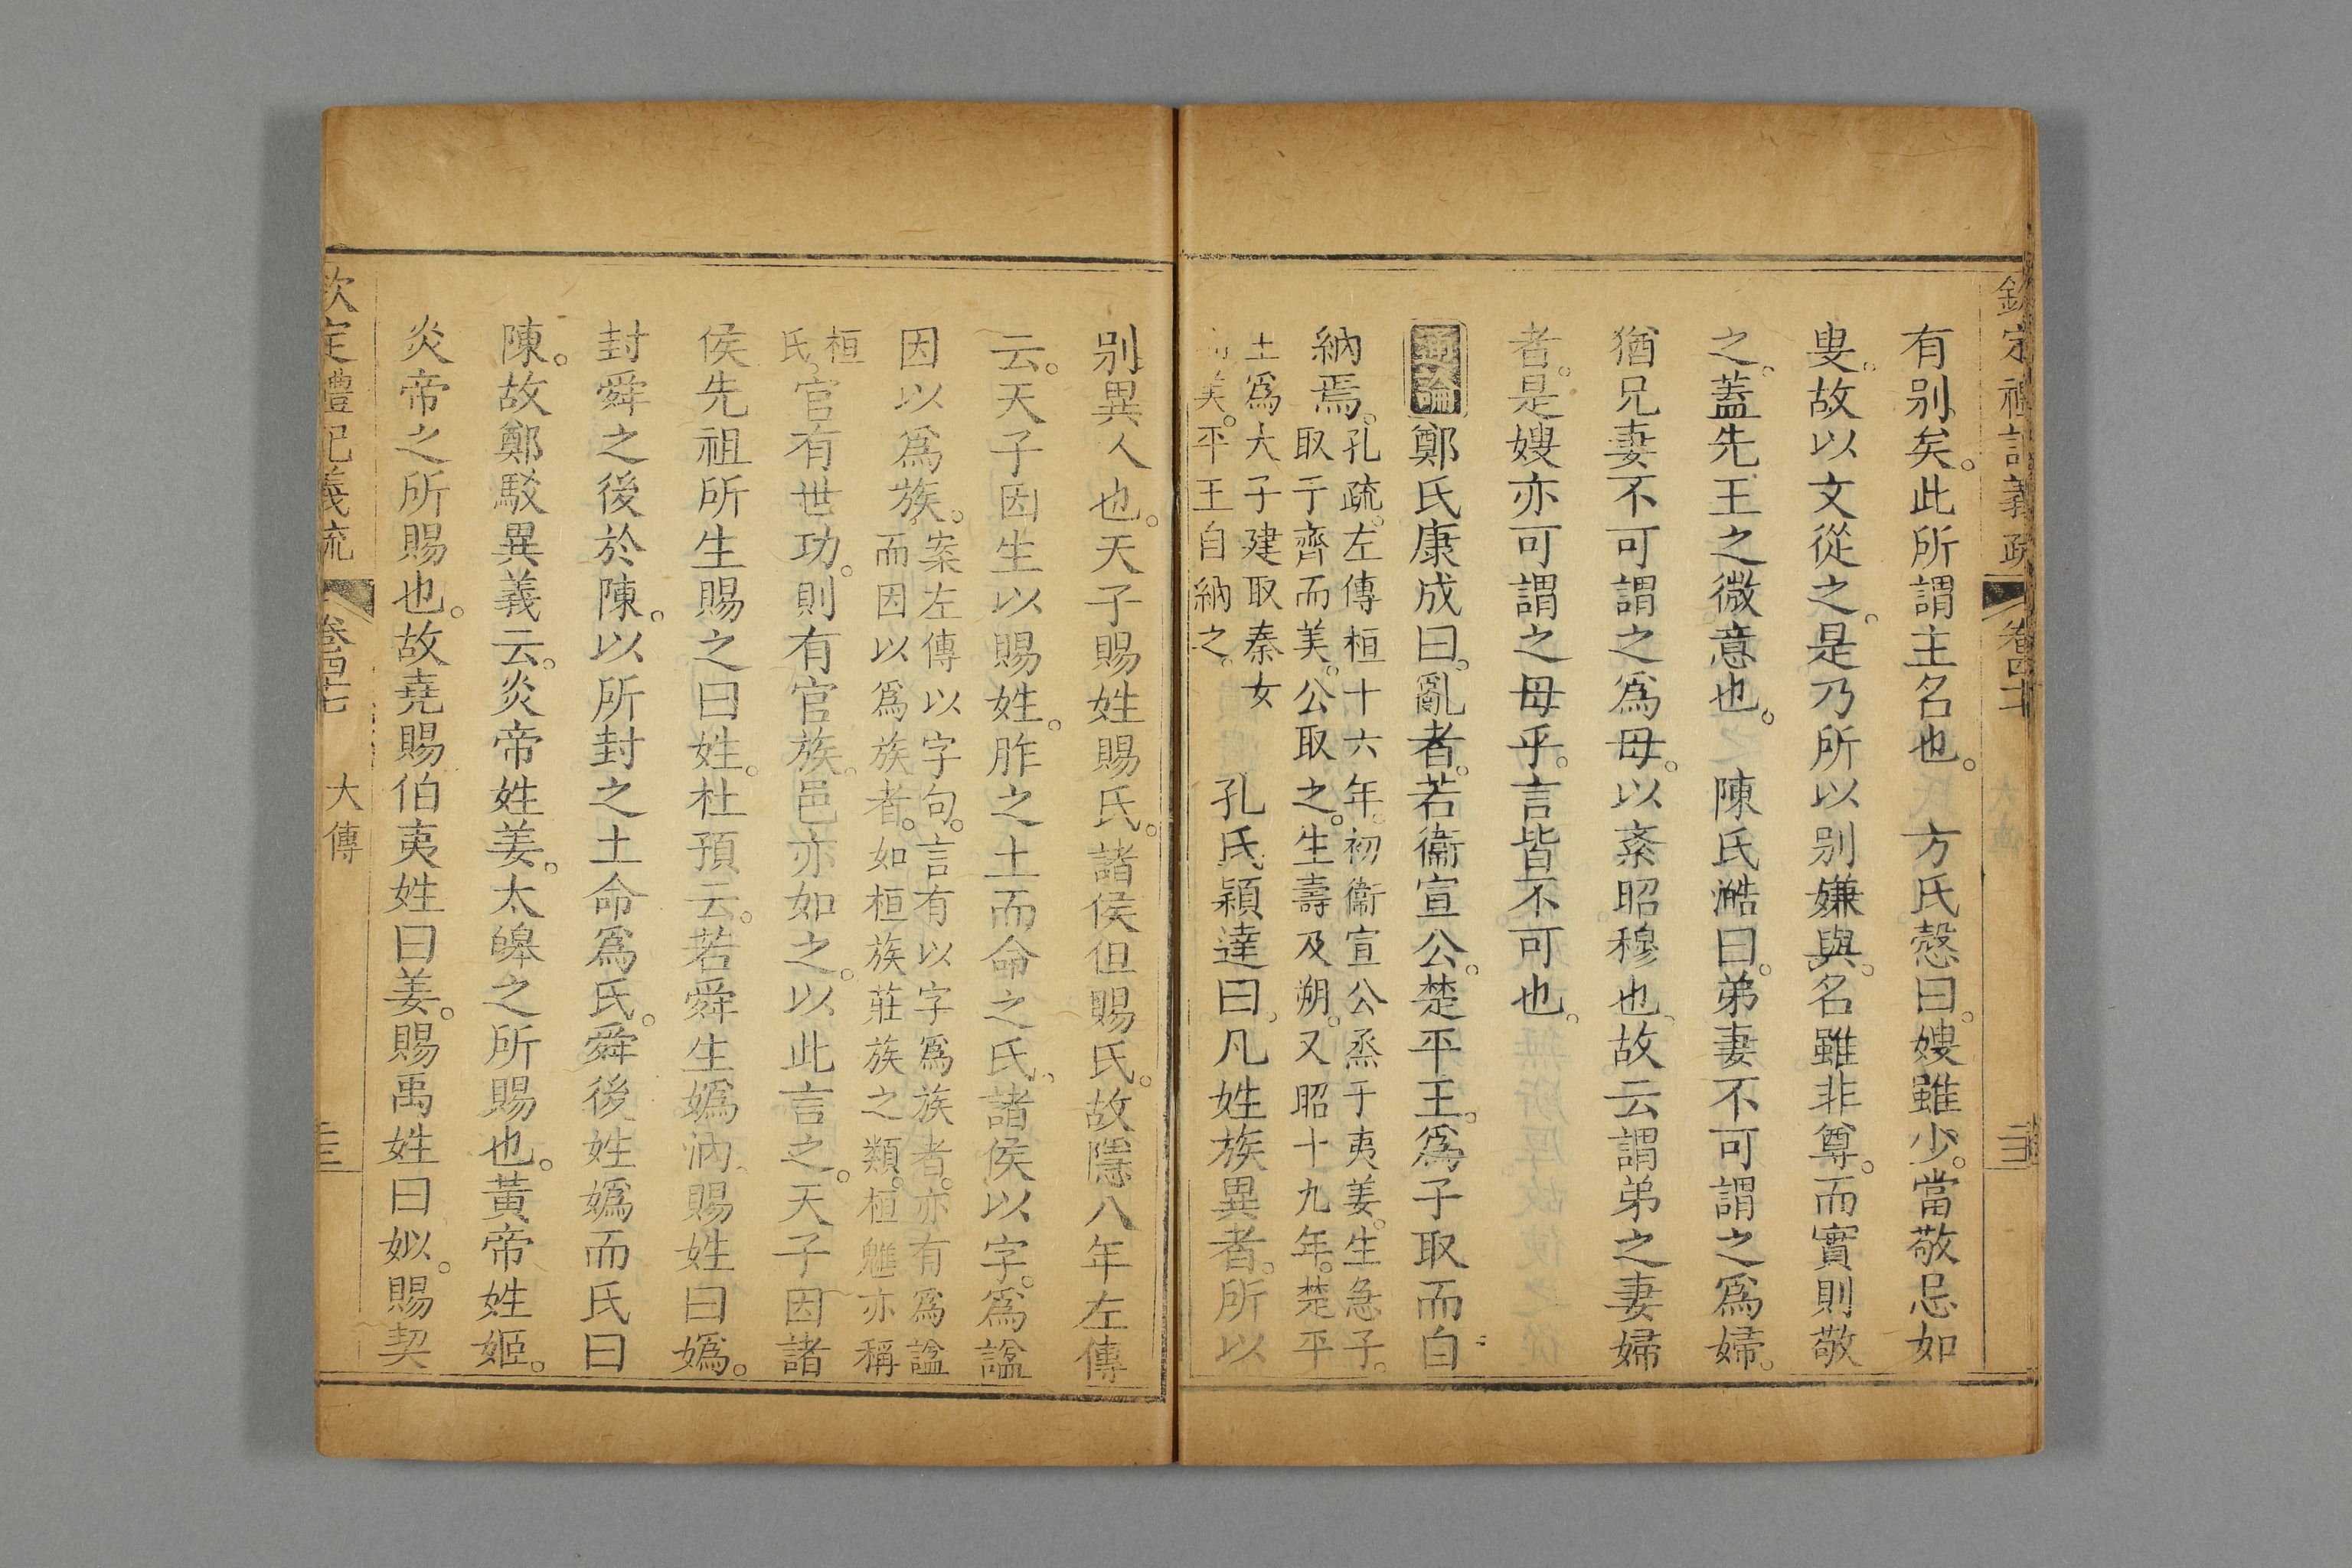 欽定禮記義疏 卷四十七
有别矣。此所謂主名也。 方氏慤曰。嫂雖少。當敬忌如
叟。故以文從之。是乃所以别嫌與。名雖非尊。而實則敬
之。蓋先王之微意也。 陳氏澔曰。弟妻不可謂之爲婦。
猶兄妻不可謂之爲母。以紊昭穆也。故云謂弟之妻婦
者。是嫂亦可謂之母乎。言皆不可也。
通論 鄭氏康成曰。亂者。若衞宣公。楚平王。爲子取而自
納焉。
孔疏。左傳桓十六年。初衞宣公烝于夷姜。生急子。
取于齊而美。公取之。生壽及朔。又昭十九年。楚平
王爲大子建取秦女
而美。平王自納之。
孔氏穎達曰。凡姓族異者。所以
别異人也。天子賜姓賜氏。諸侯但賜氏。故隱八年左傳
云。天子因生以賜姓。胙之土而命之氏。諸侯以字。爲諡
因以爲族。
案左傳以字句。言有以字爲族者。亦有爲諡
而因以爲族者。如桓族莊族之類。桓魋亦稱
桓
氏。
官有世功。則有官族。邑亦如之。以此言之。天子因諸
侯先祖所生賜之曰姓。杜預云。若舜生嬀汭。賜姓曰嬀。
封舜之後於陳。以所封之土命爲氏。舜後姓嬀而氏曰
陳。故鄭駁異義云。炎帝姓姜。太皞之所賜也。黃帝姓姬。
炎帝之所賜也。故堯賜伯夷姓曰姜。賜禹姓曰姒。賜契
欽定禮記義疏 卷四十七 大傳